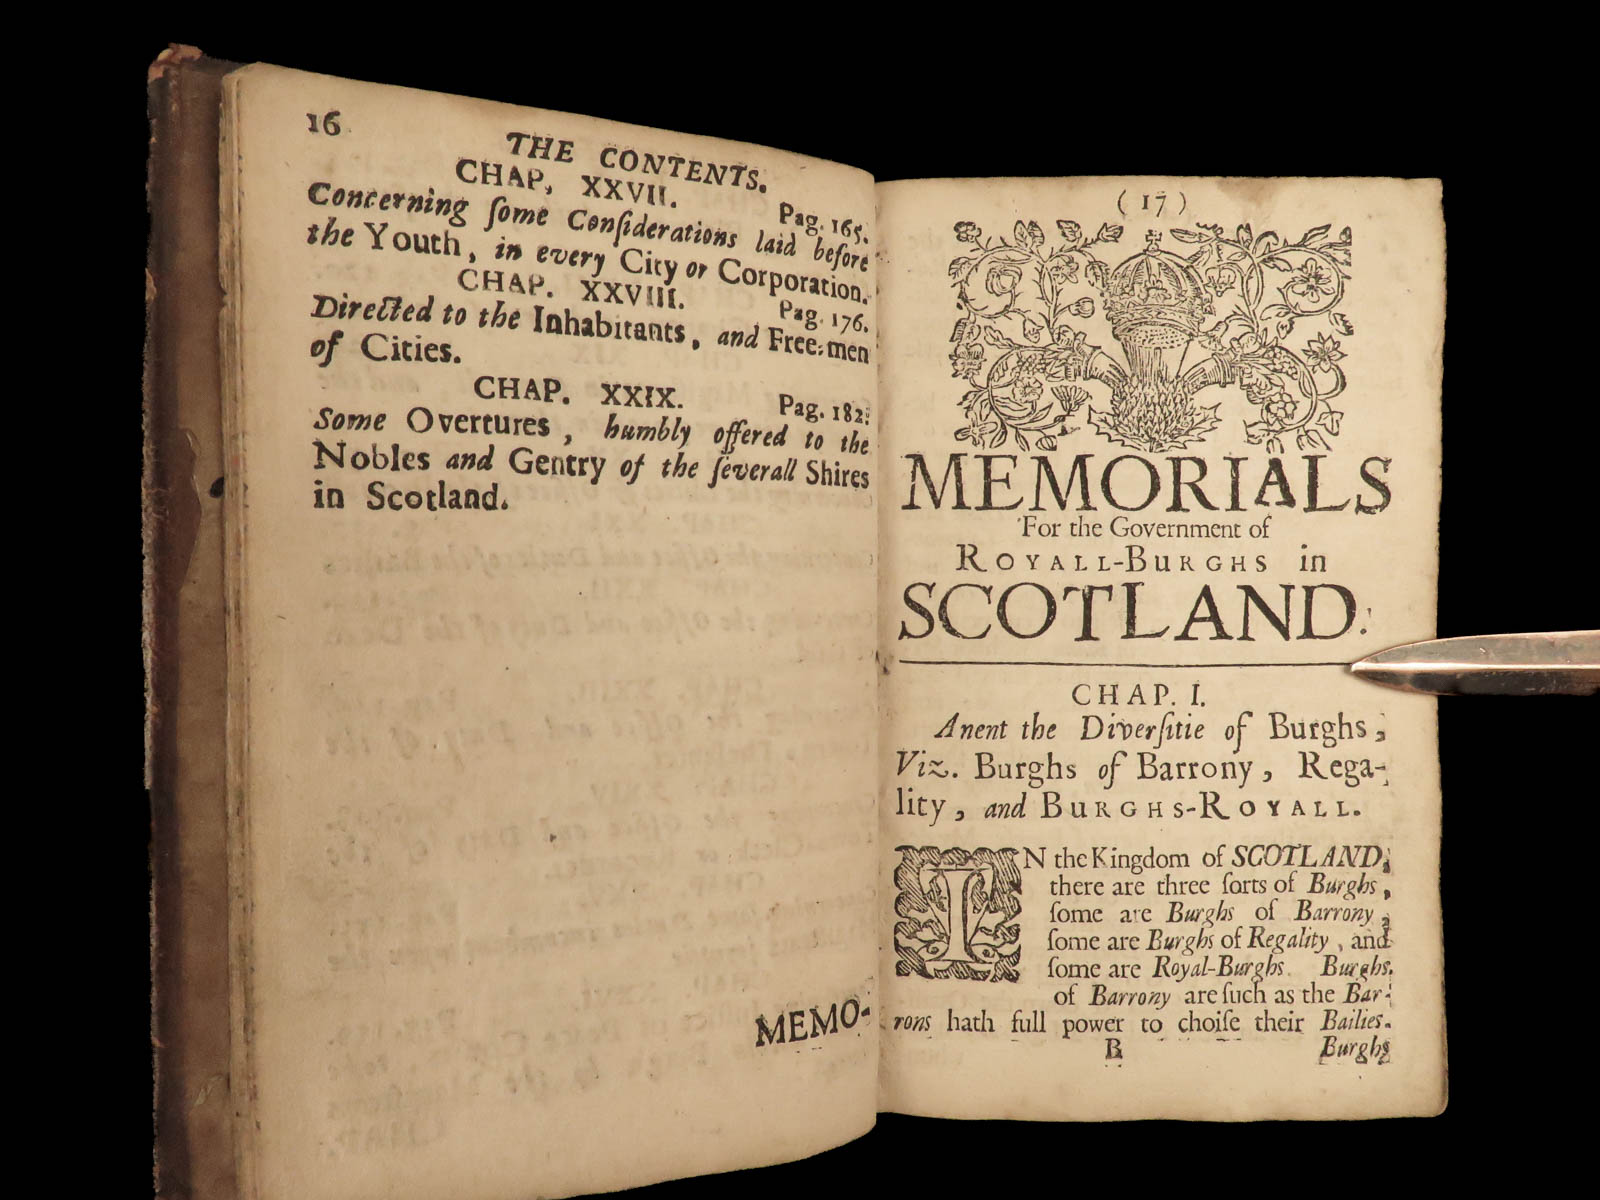 16
THE CONTENTS.
CHAP, XXVII.
Pag. 165.
Concerning ſome Conſiderations laid before
the Youth, in every City or Corporation.
CHAP. XXVIII.
Pag. 176.
Directed to the Inhabitants, and Free-men
of Cities.
CHAP. XXIX.
Pag. 182.
Some Overtures, humbly offered to the
Nobles and Gentry of the ſeverall Shires
in Scotland.
MEMO-
(17)
MEMORIALS
For the Government of
ROYALL-BURGHS in
SCOTLAND.
CHAP. I.
Anent the Diverſitie of Burghs,
Viz. Burghs of Barrony, Rega-
lity, and BURGHS-ROYALL.
IN the Kingdom of SCOTLAND,
there are three ſorts of Burghs,
ſome are Burghs of Barrony,
ſome are Burghs of Regality, and
ſome are Royal-Burghs. Burghs
of Barrony are ſuch as the Bar-
rons hath full power to choiſe their Bailies.
B Burghs